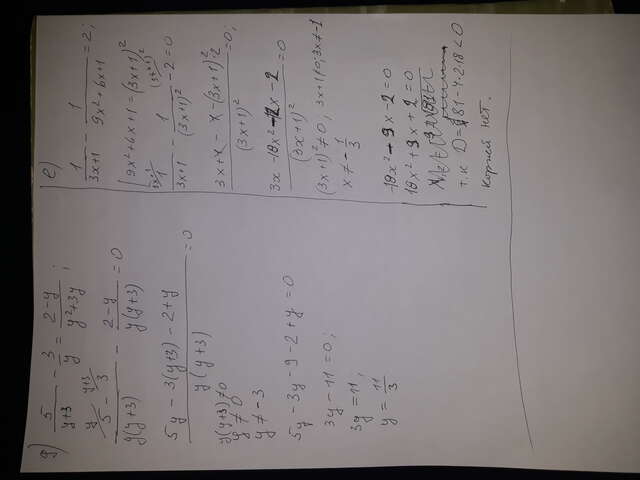 д) 5/(y+3) - 3/y = (2-y)/(y²+3y);
(5 - 3)/(y(y+3)) - (2-y)/(y(y+3)) = 0
(5y - 3(y+3) - 2+y)/(y(y+3)) = 0
y(y+3)≠0
y ≠ 0
y ≠ -3
5y - 3y - 9 - 2 + y = 0
3y - 11 = 0;
3y = 11;
y = 11/3
е) 1/(3x+1) - 1/(9x²+6x+1) = 2;
9x²+6x+1 = (3x+1)²
1/(3x+1) - 1/(3x+1)² - 2 = 0
(3x+1 - 1 - (3x+1)²·2)/(3x+1)² = 0;
(3x - 18x² - 12x - 2)/(3x+1)² = 0
(3x+1)² ≠ 0; 3x+1≠0; 3x≠-1
x ≠ -1/3
-18x² - 9x - 2 = 0
18x² + 9x + 2 = 0
т.к D = 81 - 4·2·18 < 0
Корней нет.